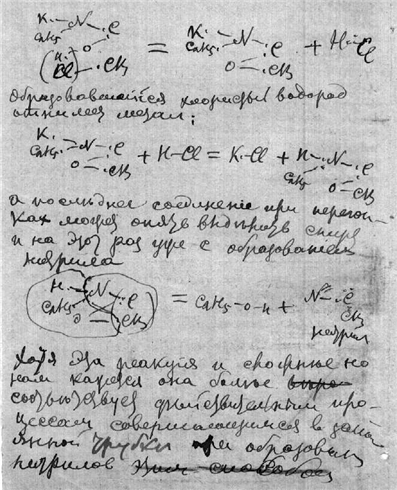 K
N
C
C₂H₅
O
CH₃
H
Cl
=
K
C₂H₅
N
C
O
CH₃
+ H-Cl
Образовавшийся хлористый водород
отнимет металл;
K
C₂H₅
N
C
O
CH₃
+ H-Cl = K-Cl +
H
C₂H₅
N
C
O
CH₃
а последнее соединение при перегон-
ках может опять выделить спирт
и на этот раз уже с образованием
нитрила
H
C₂H₅
N
C
O
CH₃
= C₂H₅-O-H +
N
C
CH₃
нитрил
Хотя эта реакция и сложнее но
нам кажется она более
соответствует действительным про-
цессам совершающимся в запа-
янной трубке при образовании
нитрилов